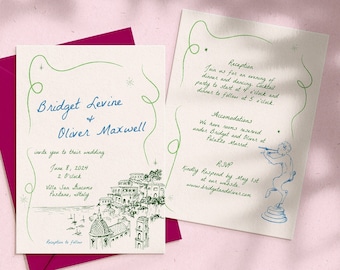 Bridget Levine
&
Oliver Maxwell
invite you to their wedding
June 8, 2024
2 O'Clock
Villa San Giacomo
Positano, Italy
Reception to follow
Reception
Join us for an evening of
dinner and dancing. Cocktail
party to start at 4 O'clock and
dinner to follow at 5 O'clock.
Accomodations
We have rooms reserved
under Bridget and Oliver at
Palazzo Murat.
RSVP
Kindly Respond by May 1st
at our website